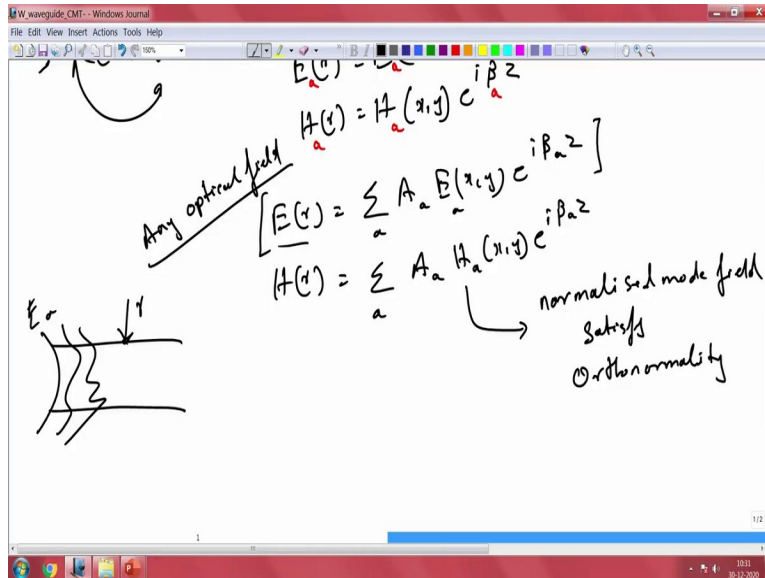 W_waveguide_CMT- - Windows Journal
File Edit View Insert Actions Tools Help
150%
B I
H_a(r) = H_a(x,y) e^{iβ_a z}
Any optical field
[E(r) = Σ_a A_a E_a(x,y) e^{iβ_a z}]
H(r) = Σ_a A_a H_a(x,y) e^{iβ_a z}
normalised mode field
Satisfs
Orthonormality
r
1
1/2
10:31
30-12-2020